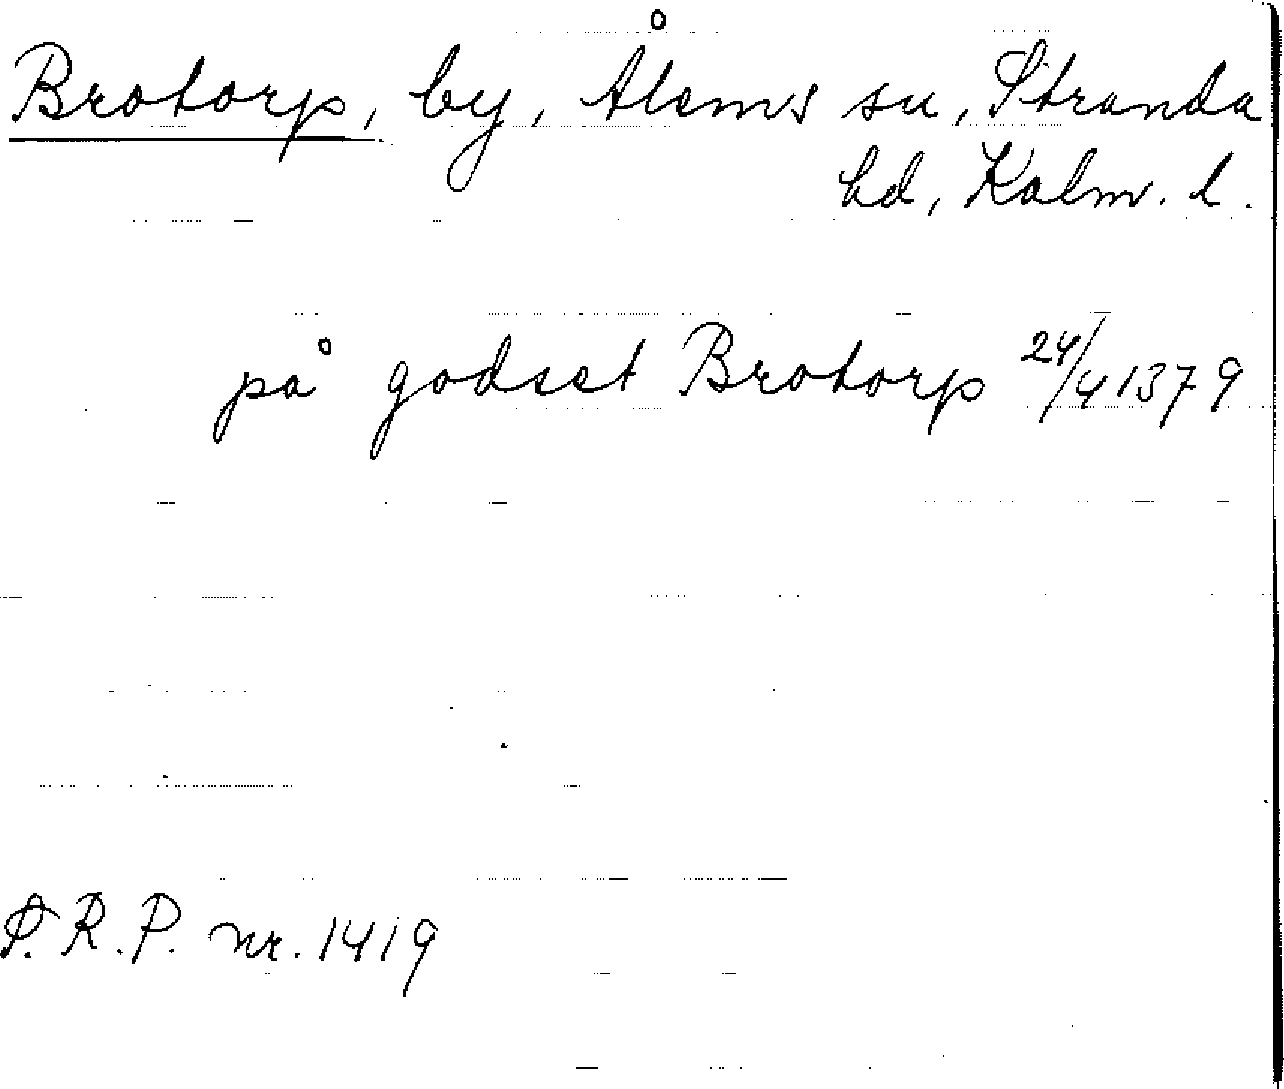 Brotorp, by, Ålems sn, Stranda
hd, Kalm. l.
på godset Brotorp 24/4 1379
S.R.P. nr. 1419